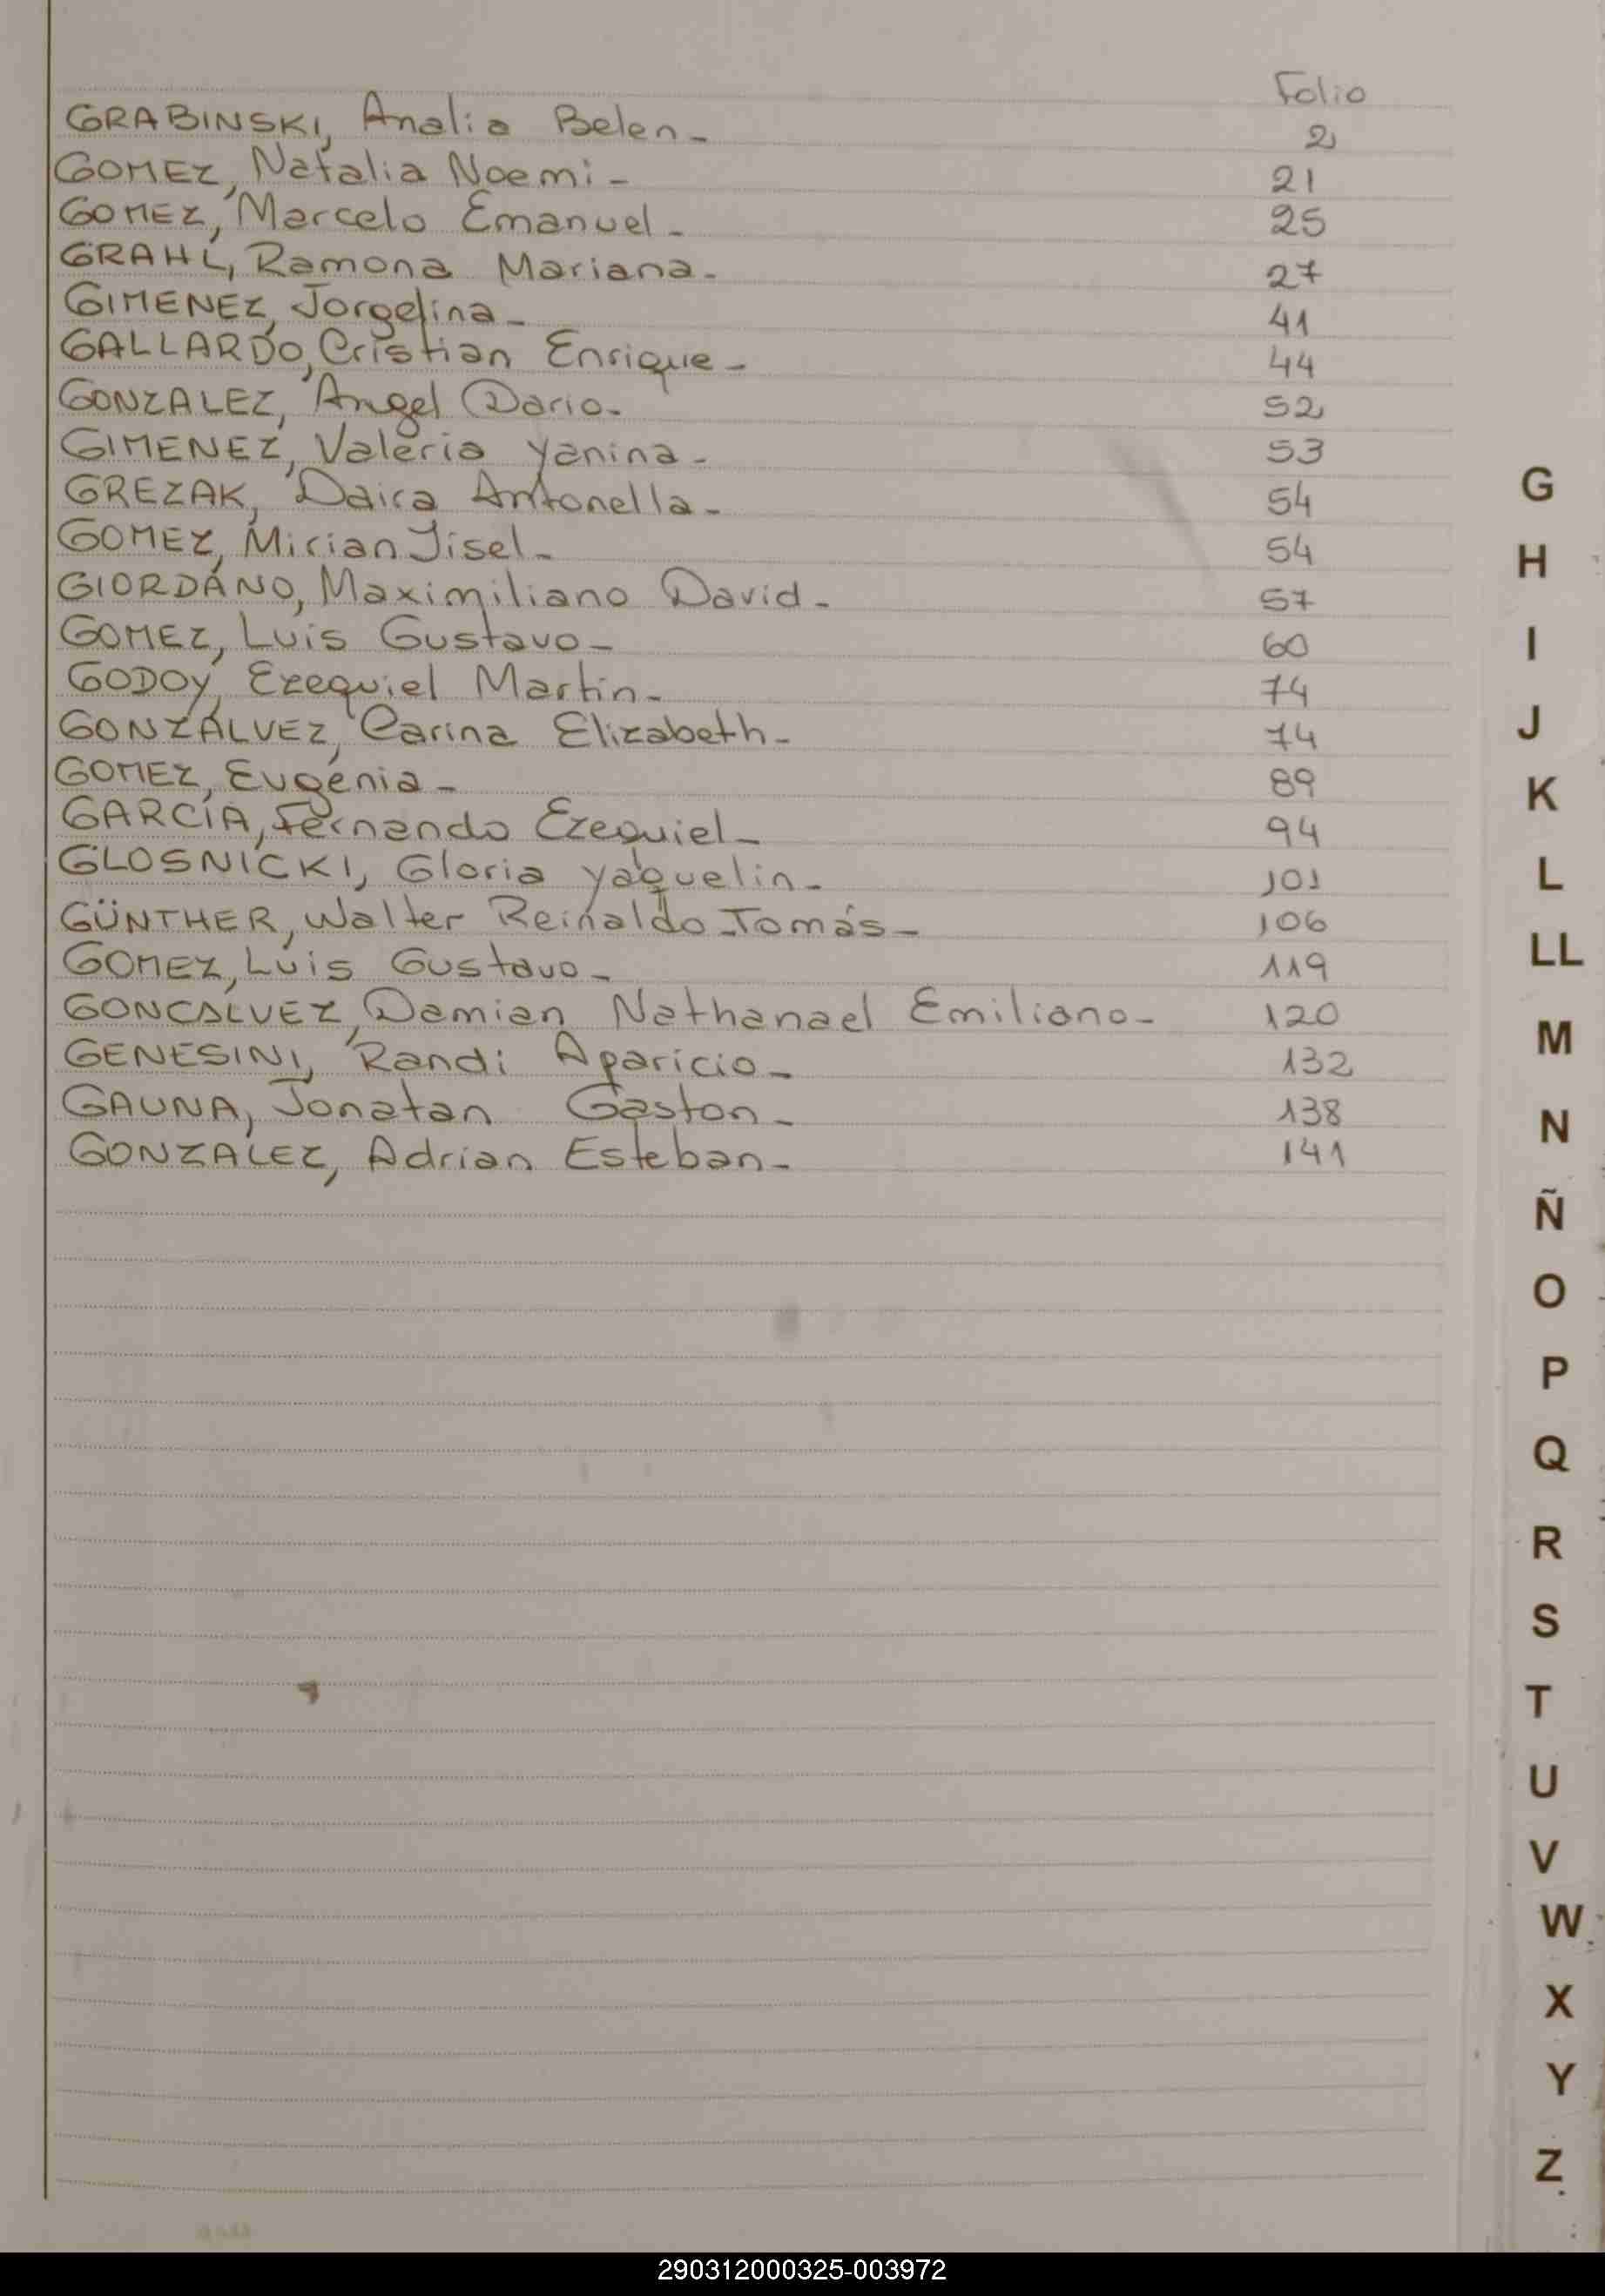 Folio
GRABINSKI, Analia Belen- 2
GOMEZ, Natalia Noemi- 21
GOMEZ, Marcelo Emanuel- 25
GRAHL, Ramona Mariana- 27
GIMENEZ, Jorgelina- 41
GALLARDO, Cristian Enrique- 44
GONZALEZ, Angel Dario- 52
GIMENEZ, Valeria Yanina- 53
GREZAK, Daira Antonella- 54
GOMEZ, Mirian Jisel- 54
GIORDANO, Maximiliano David- 57
GOMEZ, Luis Gustavo- 60
GODOY, Ezequiel Martin- 74
GONZALVEZ, Carina Elizabeth- 74
GOMEZ, Eugenia- 89
GARCÍA, Fernando Ezequiel- 94
GLOSNICKI, Gloria Yaquelin- 101
GÜNTHER, Walter Reinaldo Tomás- 106
GOMEZ, Luis Gustavo- 119
GONCALVEZ, Damian Nathanael Emiliano- 120
GENESINI, Randi Aparicio- 132
GAUNA, Jonatan Gaston- 138
GONZALEZ, Adrian Esteban- 141
G
H
I
J
K
L
LL
M
N
Ñ
O
P
Q
R
S
T
U
V
W
X
Y
Z
290312000325-003972